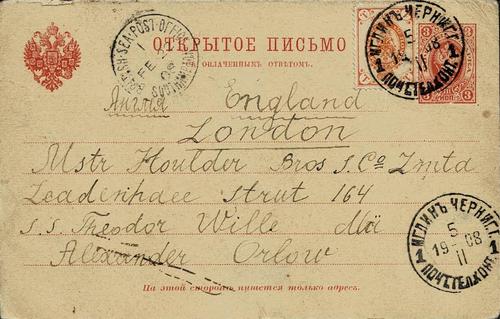 ОТКРЫТОЕ ПИСЬМО
съ ОПЛАЧЕННЫМЪ ОТВѢТОМЪ.
BRITISH-SEA-POST-OFFICE
FE
08
SOUTHAMPTON
МГЛИНЪ ЧЕРНИГ.Г.
5
19-08
II
1 1
ПОЧТ.ТЕЛ.КОНТ.
3 3
3 3
КОП.
Англія England
London
Mstr Houlder Bros & Co Lmta
Leadenhaee strut 164
s.s. Theodor Wille Mä
Alexander Orlow
МГЛИНЪ ЧЕРНИГ.Г.
5
19-08
II
1 1
ПОЧТ.ТЕЛ.КОНТ.
На этой сторонѣ пишется только адресъ.